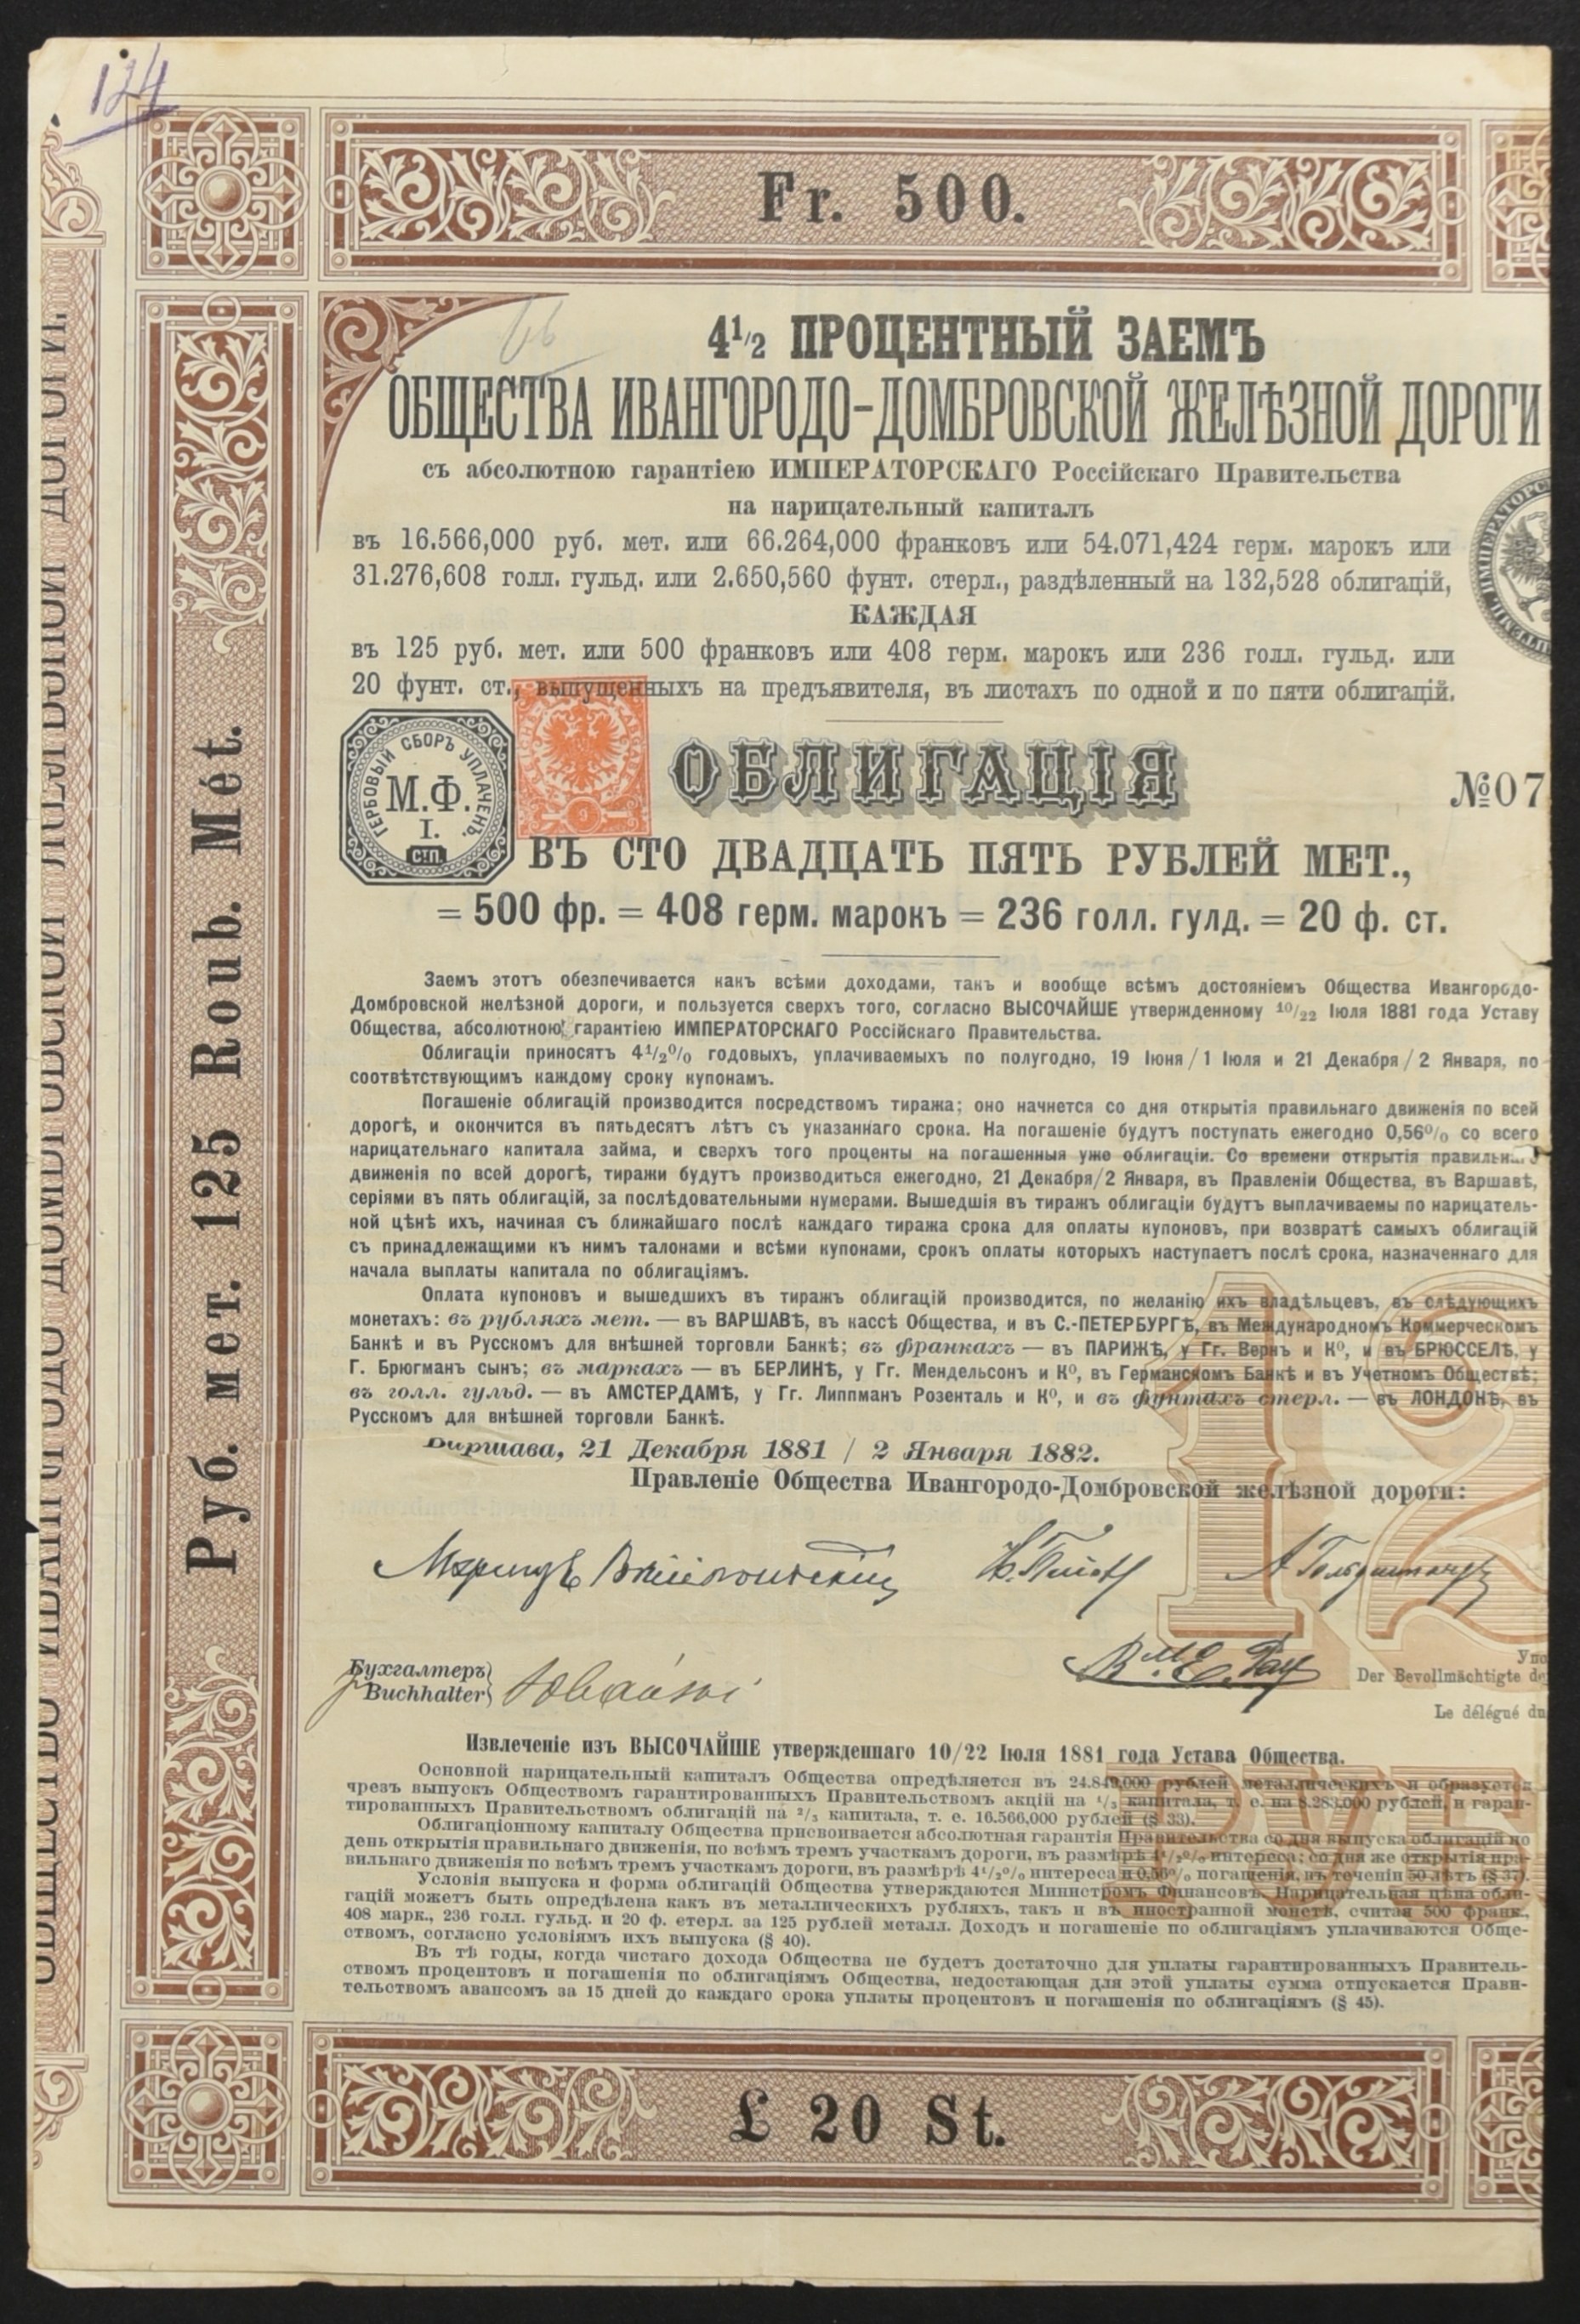 124
Fr. 500.
66
4½ ПРОЦЕНТНЫЙ ЗАЕМЪ
ОБЩЕСТВА ИВАНГОРОДО-ДОМБРОВСКОЙ ЖЕЛѢЗНОЙ ДОРОГИ
съ абсолютною гарантіею ИМПЕРАТОРСКАГО Россійскаго Правительства
на нарицательный капиталъ
въ 16.566,000 руб. мет. или 66.264,000 франковъ или 54.071,424 герм. марокъ или
31.276,608 голл. гульд. или 2.650,560 фунт. стерл., раздѣленный на 132,528 облигацій,
КАЖДАЯ
въ 125 руб. мет. или 500 франковъ или 408 герм. марокъ или 236 голл. гульд. или
20 фунт. ст., выпущенныхъ на предъявителя, въ листахъ по одной и по пяти облигацій.
ГЕРБОВЫЙ СБОРЪ УПЛАЧЕНЪ.
М.Ф.
I.
С.П.
ОБЛИГАЦІЯ
№07
ВЪ СТО ДВАДЦАТЬ ПЯТЬ РУБЛЕЙ МЕТ.,
= 500 фр. = 408 герм. марокъ = 236 голл. гулд. = 20 ф. ст.
Заемъ этотъ обезпечивается какъ всѣми доходами, такъ и вообще всѣмъ достояніемъ Общества Ивангородо-
Домбровской желѣзной дороги, и пользуется сверхъ того, согласно ВЫСОЧАЙШЕ утвержденному 10/22 Іюля 1881 года Уставу
Общества, абсолютною гарантіею ИМПЕРАТОРСКАГО Россійскаго Правительства.
Облигаціи приносятъ 4½% годовыхъ, уплачиваемыхъ по полугодно, 19 Іюня / 1 Іюля и 21 Декабря / 2 Января, по
соотвѣтствующимъ каждому сроку купонамъ.
Погашеніе облигацій производится посредствомъ тиража; оно начнется со дня открытія правильнаго движенія по всей
дорогѣ, и окончится въ пятьдесятъ лѣтъ съ указаннаго срока. На погашеніе будутъ поступать ежегодно 0,56% со всего
нарицательнаго капитала займа, и сверхъ того проценты на погашенныя уже облигаціи. Со времени открытія правильнаго
движенія по всей дорогѣ, тиражи будутъ производиться ежегодно, 21 Декабря/2 Января, въ Правленіи Общества, въ Варшавѣ,
серіями въ пять облигацій, за послѣдовательными нумерами. Вышедшія въ тиражъ облигаціи будутъ выплачиваемы по нарицатель-
ной цѣнѣ ихъ, начиная съ ближайшаго послѣ каждаго тиража срока для оплаты купоновъ, при возвратѣ самыхъ облигацій
съ принадлежащими къ нимъ талонами и всѣми купонами, срокъ оплаты которыхъ наступаетъ послѣ срока, назначеннаго для
начала выплаты капитала по облигаціямъ.
Оплата купоновъ и вышедшихъ въ тиражъ облигацій производится, по желанію ихъ владѣльцевъ, въ слѣдующихъ
монетахъ: въ рубляхъ мет. — въ ВАРШАВѢ, въ кассѣ Общества, и въ С.-ПЕТЕРБУРГѢ, въ Международномъ Коммерческомъ
Банкѣ и въ Русскомъ для внѣшней торговли Банкѣ; въ франкахъ — въ ПАРИЖѢ, у Гг. Вернъ и К⁰, и въ БРЮССЕЛѢ, у
Г. Брюгманъ сынъ; въ маркахъ — въ БЕРЛИНѢ, у Гг. Мендельсонъ и К⁰, въ Германскомъ Банкѣ и въ Учетномъ Обществѣ;
въ голл. гульд. — въ АМСТЕРДАМѢ, у Гг. Липпманъ Розенталь и К⁰, и въ фунтахъ стерл. — въ ЛОНДОНѢ, въ
Русскомъ для внѣшней торговли Банкѣ.
Варшава, 21 Декабря 1881 / 2 Января 1882.
Правленіе Общества Ивангородо-Домбровской желѣзной дороги:
Бухгалтеръ
Buchhalter
Упо
Der Bevollmächtigte de
Le délégué du
Извлеченіе изъ ВЫСОЧАЙШЕ утвержденнаго 10/22 Іюля 1881 года Устава Общества.
Основной нарицательный капиталъ Общества опредѣляется въ 24.849,000 рублей металлическихъ и образуется
чрезъ выпускъ Обществомъ гарантированныхъ Правительствомъ акцій на ⅓ капитала, т. е. на 8.283,000 рублей, и гаран-
тированныхъ Правительствомъ облигацій на ⅔ капитала, т. е. 16.566,000 рублей (§ 33).
Облигаціонному капиталу Общества присвоивается абсолютная гарантія Правительства со дня выпуска облигацій по
день открытія правильнаго движенія, по всѣмъ тремъ участкамъ дороги, въ размѣрѣ 4½% интереса; со дня же открытія пра-
вильнаго движенія по всѣмъ тремъ участкамъ дороги, въ размѣрѣ 4½% интереса и 0,56% погашенія, въ теченіи 50 лѣтъ (§ 37).
Условія выпуска и форма облигацій Общества утверждаются Министромъ Финансовъ. Нарицательная цѣна обли-
гацій можетъ быть опредѣлена какъ въ металлическихъ рубляхъ, такъ и въ иностранной монетѣ, считая 500 франк.,
408 марк., 236 голл. гульд. и 20 ф. стерл. за 125 рублей металл. Доходъ и погашеніе по облигаціямъ уплачиваются Обще-
ствомъ, согласно условіямъ ихъ выпуска (§ 40).
Въ тѣ годы, когда чистаго дохода Общества не будетъ достаточно для уплаты гарантированныхъ Правитель-
ствомъ процентовъ и погашенія по облигаціямъ Общества, недостающая для этой уплаты сумма отпускается Прави-
тельствомъ авансомъ за 15 дней до каждаго срока уплаты процентовъ и погашенія по облигаціямъ (§ 45).
12
РУБ
£ 20 St.
Руб. мет. 125 Roub. Mét.
ОБЩЕСТВО ИВАНГОРОДО-ДОМБРОВСКОЙ ЖЕЛѢЗНОЙ ДОРОГИ.